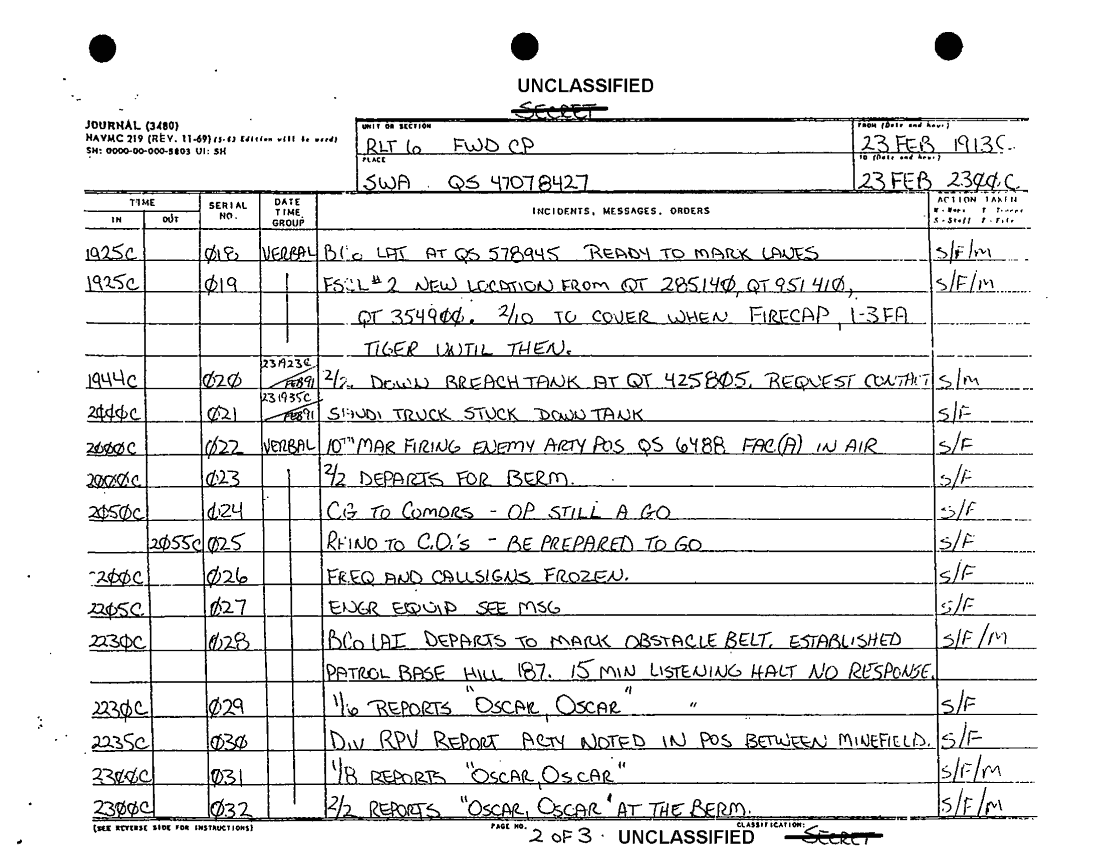 UNCLASSIFIED
SECRET
JOURNAL (3480)
NAVMC 219 (REV. 11-69) (5-63 Edition will be used)
SN: 0000-00-000-5803 UI: SH
UNIT OR SECTION
RLT 6 FWD CP
FROM (Date and hour)
23 FEB 1913C
PLACE
SWA QS 47078427
TO (Date and hour)
23 FEB 23ØØC
TIME
IN OUT
SERIAL NO.
DATE TIME GROUP
INCIDENTS, MESSAGES, ORDERS
ACTION TAKEN
M - Maps T - Troops
S - Staff F - File
1925C Ø18 VERBAL BCo LAI AT QS 578945 READY TO MARK LANES S/F/M
1925C Ø19 FSCL #2 NEW LOCATION FROM QT 28514Ø, QT 951 41Ø, S/F/M
QT 3549ØØ. 2/10 TO COVER WHEN FIRECAP, 1-3FA
TIGER UNTIL THEN.
1944C Ø2Ø 231923C FEB91 2/2 DOWN BREACH TANK AT QT 4258Ø5. REQUEST CONTACT S/M
2ØØØC Ø21 231935C FEB91 SAUDI TRUCK STUCK DOWN TANK S/F
2ØØØC Ø22 VERBAL 10TH MAR FIRING ENEMY ARTY POS QS 6488 FAC(A) IN AIR S/F
2ØØØC Ø23 2/2 DEPARTS FOR BERM. S/F
2Ø5ØC Ø24 CG TO COMDRS - OP STILL A GO S/F
2Ø55C Ø25 RHINO TO C.O.'s - BE PREPARED TO GO S/F
2ØØC Ø26 FREQ AND CALLSIGNS FROZEN. S/F
22Ø5C Ø27 ENGR EQUIP SEE MSG S/F
223ØC Ø28 BCo LAI DEPARTS TO MARK OBSTACLE BELT. ESTABLISHED S/F/M
PATROL BASE HILL 187. 15 MIN LISTENING HALT NO RESPONSE.
223ØC Ø29 1/6 REPORTS "OSCAR, OSCAR" " S/F
2235C Ø3Ø DIV RPV REPORT ARTY NOTED IN POS BETWEEN MINEFIELD. S/F
23ØØC Ø31 1/8 REPORTS "OSCAR, OSCAR" S/F/M
23ØØC Ø32 2/2 REPORTS "OSCAR, OSCAR" AT THE BERM. S/F/M
(SEE REVERSE SIDE FOR INSTRUCTIONS)
PAGE NO.
2 OF 3
CLASSIFICATION:
UNCLASSIFIED SECRET